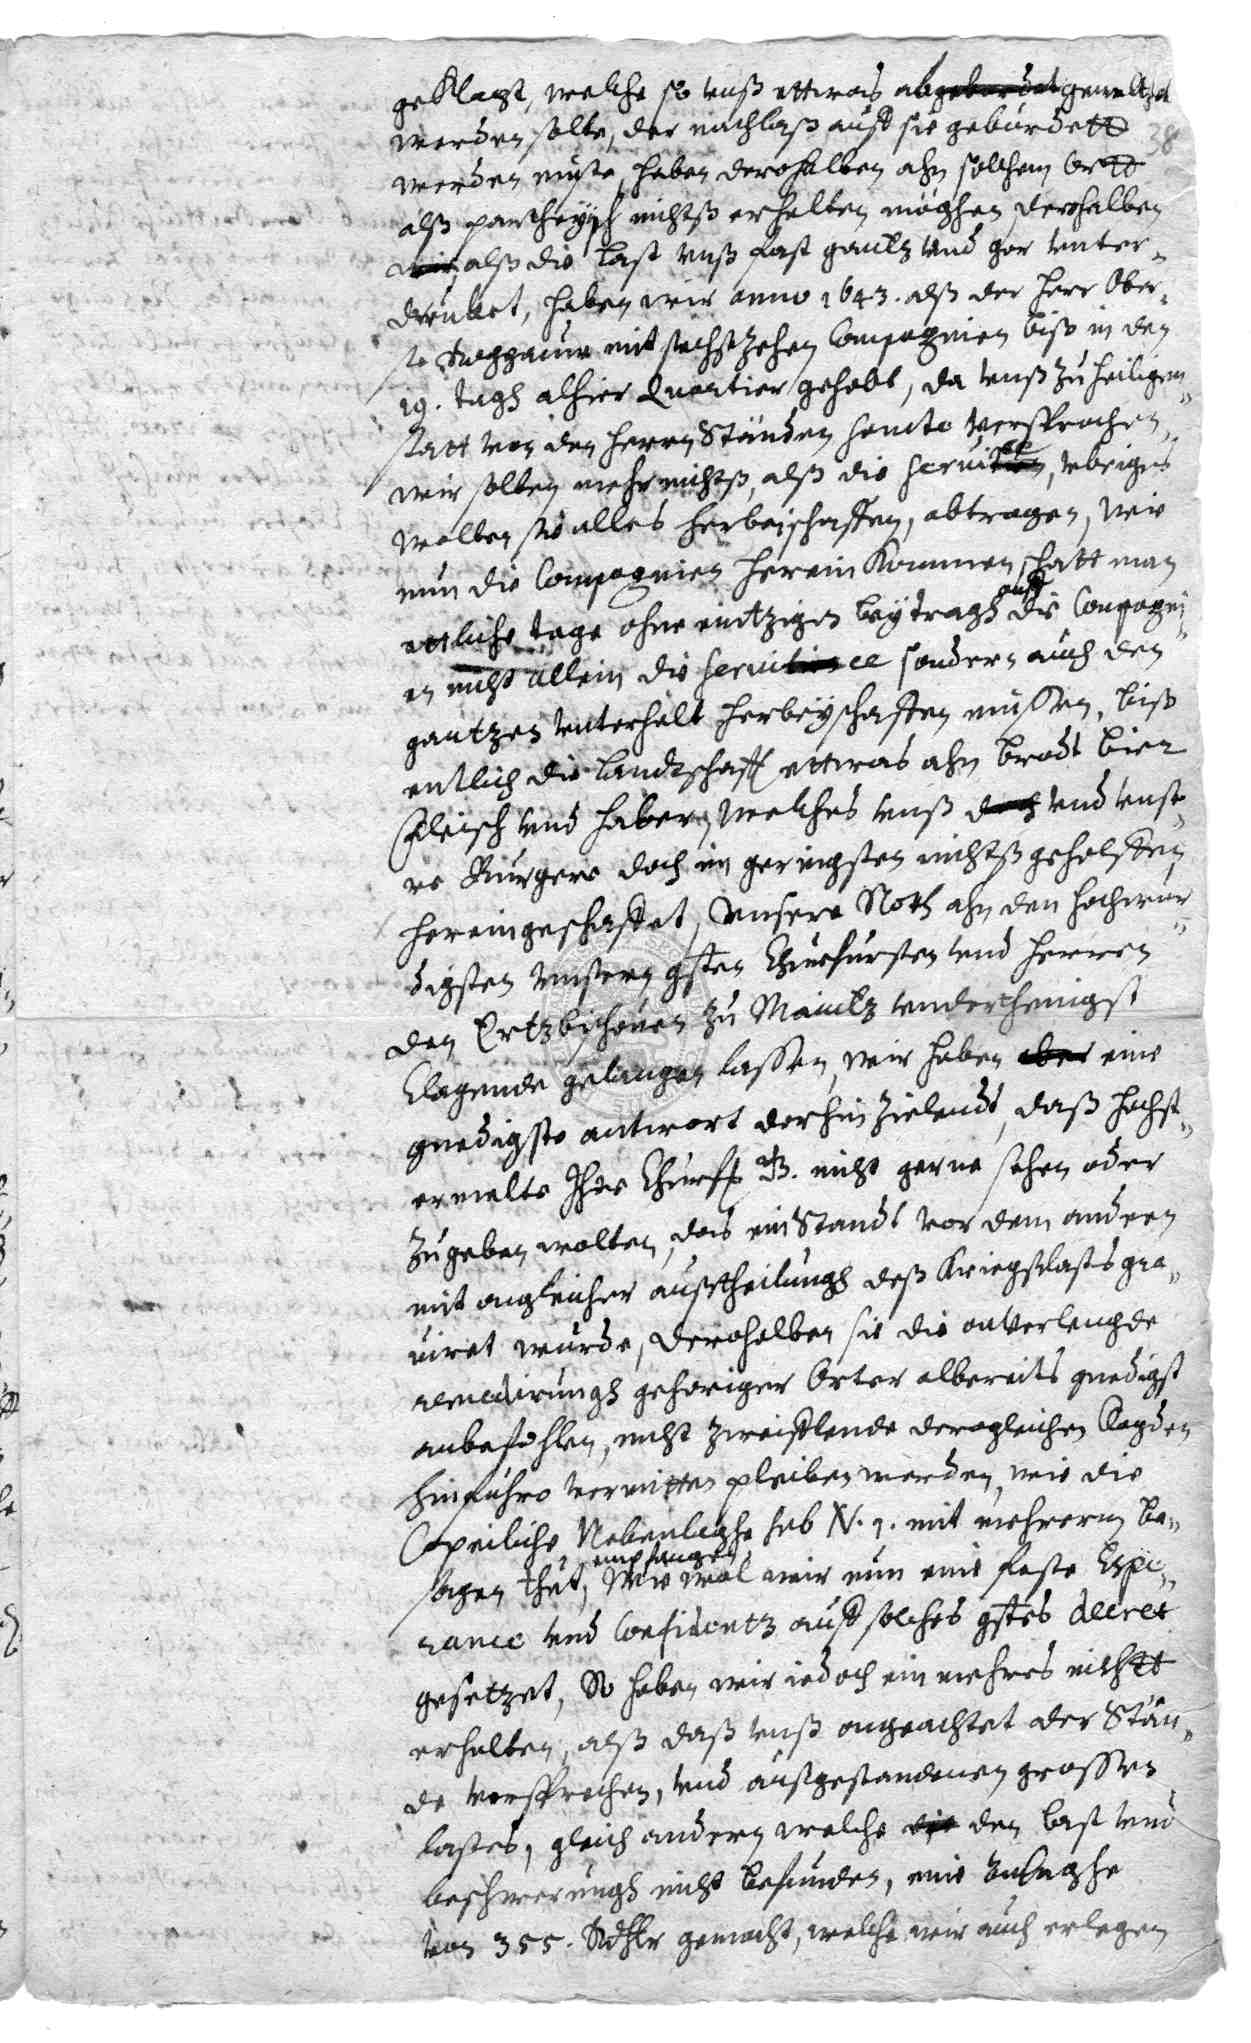 geklagt, welche so unß ettwas abgebordet geweltzet
38
werden solte, der nachlaß auff sie gebürdett
werden müste, haben derohalben ahn solchem Ortt
alß partheyisch nichtß erhalten möghen, derohalben
wir, alß die last unß fast gantz und gar unter-
druket, haben wir anno 1643. alß der Herr Ober-
ste mit sechszehen Compagnien biß in den
19. tagh alhier Quartier gehabt, da unß zu Heiligen-
statt von den Herrn Ständen heimte versprochen,
wir solten mehr nichtß, alß die servitien ce, ubriges
wolten sie alles herbeischaffen, abtragen, wie
nun die Compagnien herein kommen, hatt man
ettliche tage ohne eintzigen beytragh auff die Compagni-
en nicht allein die servitien ce sondern auch den
gantzen unterhalt herbeyschaffen müssen, biß
entlich die landtschafft ettwas ahn brodt bier
fleisch und haber, welches unß doch und unse-
re Burgere doch im geringsten nichtß geholffen,
hereingeschaffet, unsere Noth ahn den hochwür-
digsten unsern gsten Churfürsten und herren
den Ertzbischoven zu Maintz underthenigst
klagende gelangen lassen, wir haben aber eine
gnedigste antwort dorhin zielendt, daß höchst-
ermelte Ihre Churff. G. nicht gerne sehen oder
zugeben wolten, das ein Standt vor dem andern
mit ongleicher außtheilungh deß Kriegßlasts gra-
viret würde, derohalben sie die onverlengde
remedirungh gehöriger Orter albereits gnedigst
anbefohlen, nicht zweiflende derogleichen klagden
hinführo vermitten pleiben werden, wie die
Copeiliche Nebenlaghe sub N. 1. mit mehrerm be-
sagen thut, empfangen, Wie wol wir nun eine feste Espe-
rance und Confidentz auff solches gstes decret
gesetzet, So haben wir iedoch ein mehres nichtt
erhalten, alß daß unß ongeachtet der Stän-
de versprechen, und außgestandenen grossen
lastes, gleich andern welche die den last und
beschwerungh nicht befunden, eine Anlaghe
von 355. Rdthlr gemacht, welche wir auch erlegen